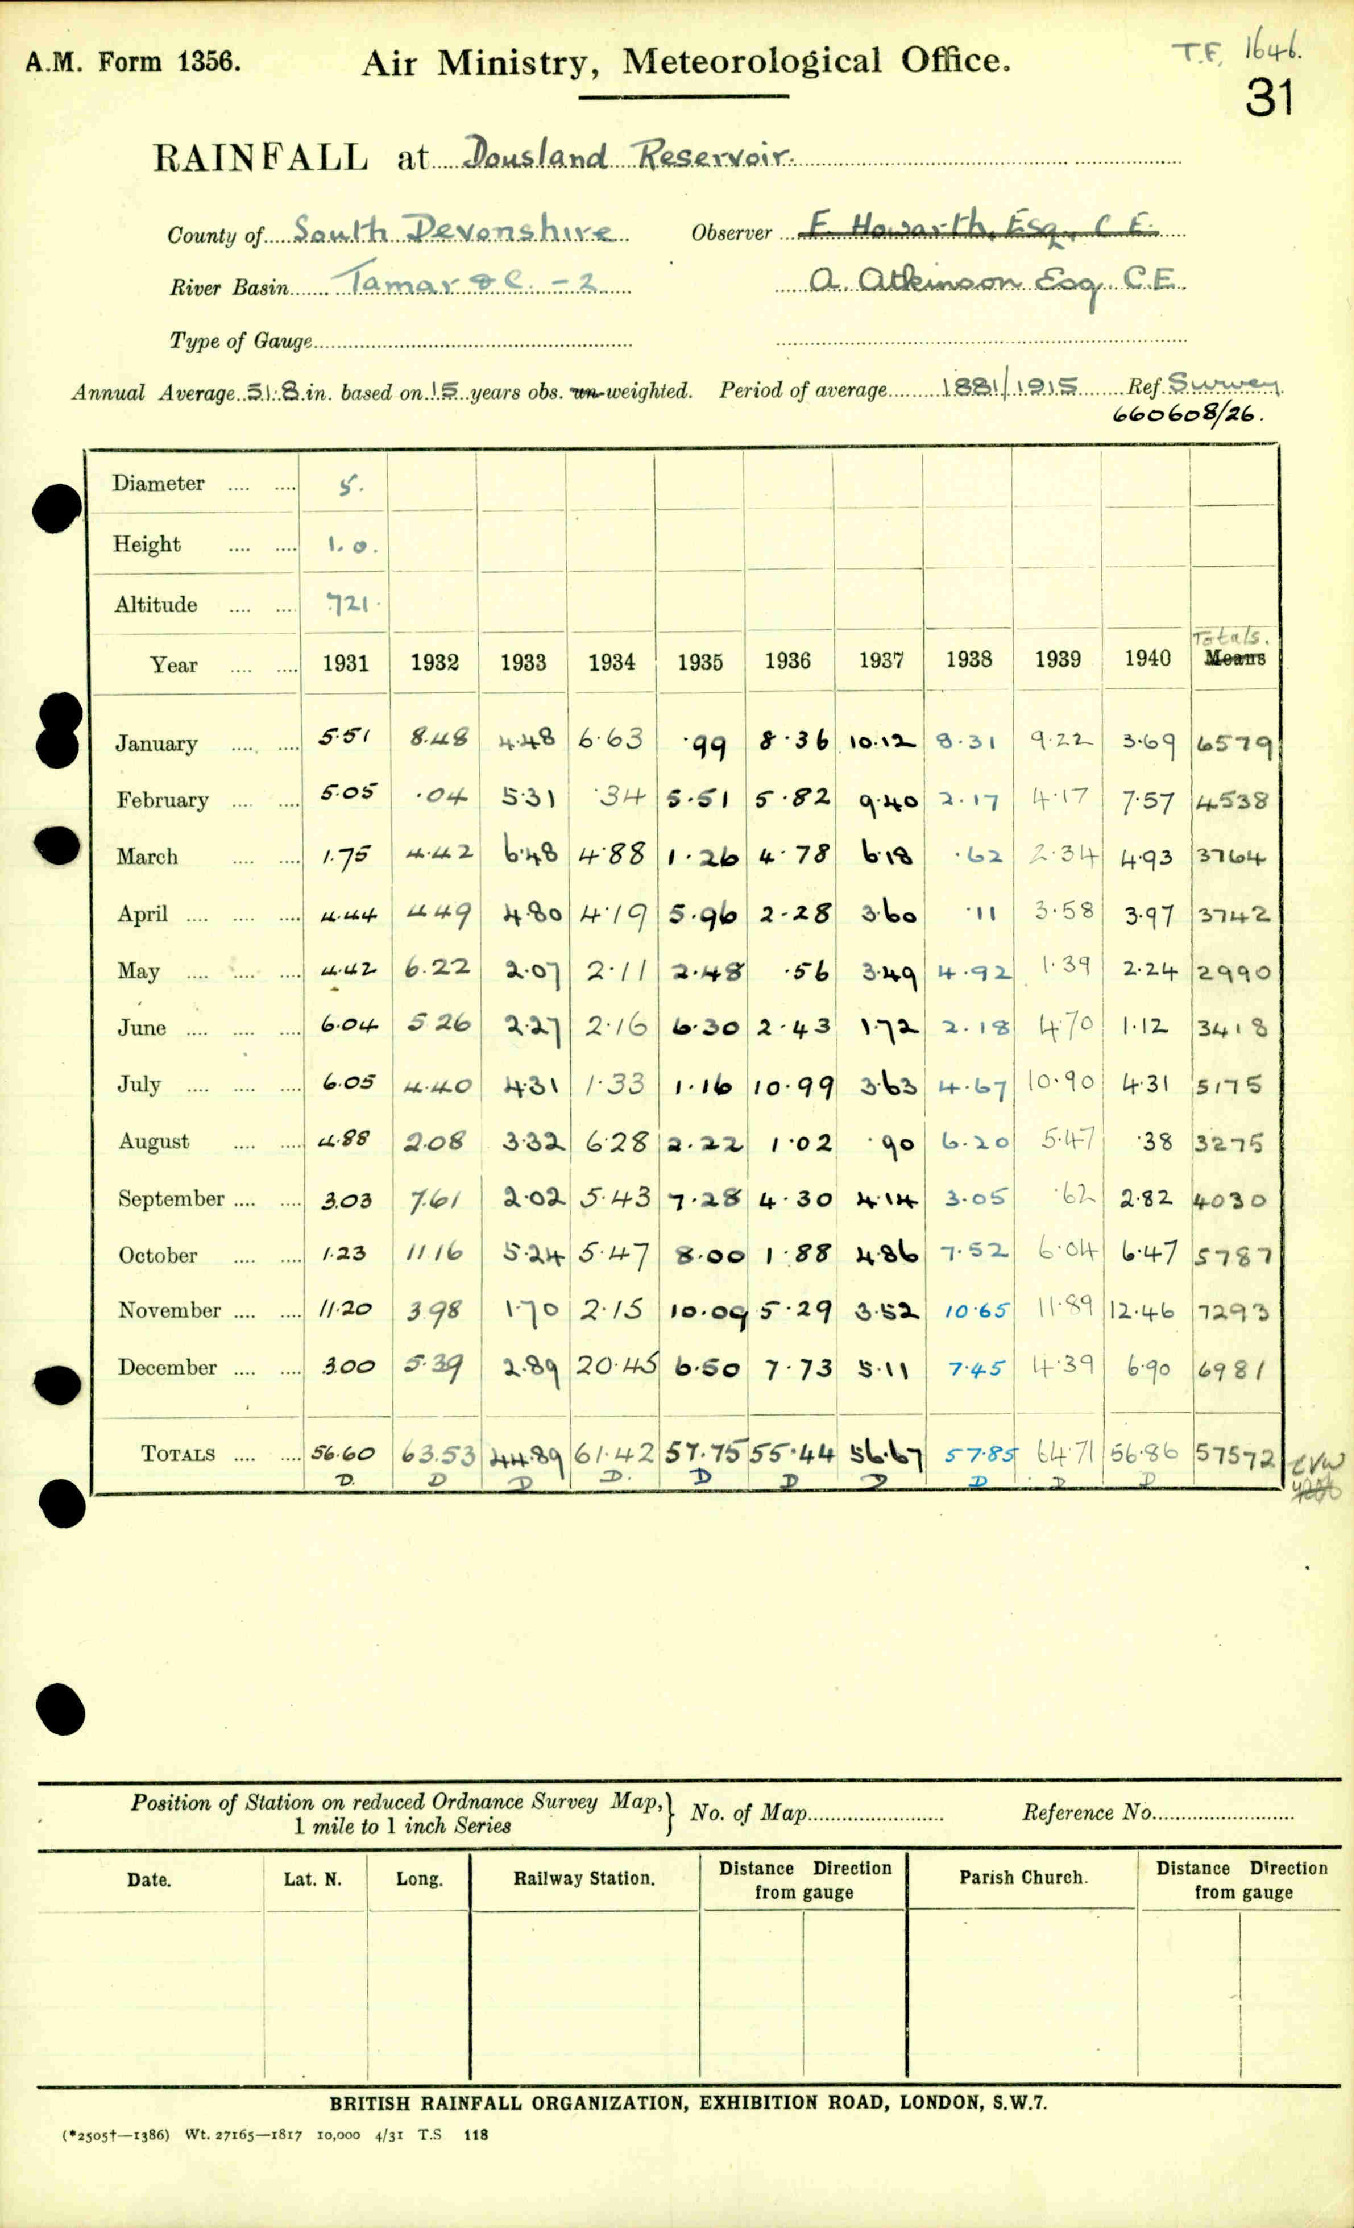 A.M. Form 1356. Air Ministry, Meteorological Office. T.F. 1646.
31
RAINFALL at Dousland Reservoir.
County of South Devonshire Observer F. Howarth, Esq., C.E.
River Basin Tamar &c. - 2 A. Atkinson Esq. C.E.
Type of Gauge
Annual Average 51.8 in. based on 15 years obs. un-weighted. Period of average 1881/1915 Ref. Survey.
660608/26.
Diameter 5.
Height 1.0.
Altitude 721.
Totals.
Year 1931 1932 1933 1934 1935 1936 1937 1938 1939 1940 Means
January 5.51 8.48 4.48 6.63 .99 8.36 10.12 8.31 9.22 3.69 6579
February 5.05 .04 5.31 .34 5.51 5.82 9.40 2.17 4.17 7.57 4538
March 1.75 4.42 6.48 4.88 1.26 4.78 6.18 .62 2.34 4.93 3764
April 4.44 4.49 4.80 4.19 5.96 2.28 3.60 .11 3.58 3.97 3742
May 4.42 6.22 2.07 2.11 2.48 .56 3.49 4.92 1.39 2.24 2990
June 6.04 5.26 2.27 2.16 6.30 2.43 1.72 2.18 4.70 1.12 3418
July 6.05 4.40 4.31 1.33 1.16 10.99 3.63 4.67 10.90 4.31 5175
August 4.88 2.08 3.32 6.28 2.22 1.02 .90 6.20 5.47 .38 3275
September 3.03 7.61 2.02 5.43 7.28 4.30 4.14 3.05 .62 2.82 4030
October 1.23 11.16 5.24 5.47 8.00 1.88 4.86 7.52 6.04 6.47 5787
November 11.20 3.98 1.70 2.15 10.09 5.29 3.52 10.65 11.89 12.46 7293
December 3.00 5.39 2.89 20.45 6.50 7.73 5.11 7.45 4.39 6.90 6981
TOTALS 56.60 63.53 44.89 61.42 57.75 55.44 56.67 57.85 64.71 56.86 57572
D. D D D. D D D D D D
Position of Station on reduced Ordnance Survey Map, } No. of Map Reference No.
1 mile to 1 inch Series
Date. Lat. N. Long. Railway Station. Distance Direction from gauge Parish Church. Distance Direction from gauge
BRITISH RAINFALL ORGANIZATION, EXHIBITION ROAD, LONDON, S.W.7.
(*2505†—1386) Wt. 27165—1817 10,000 4/31 T.S 118